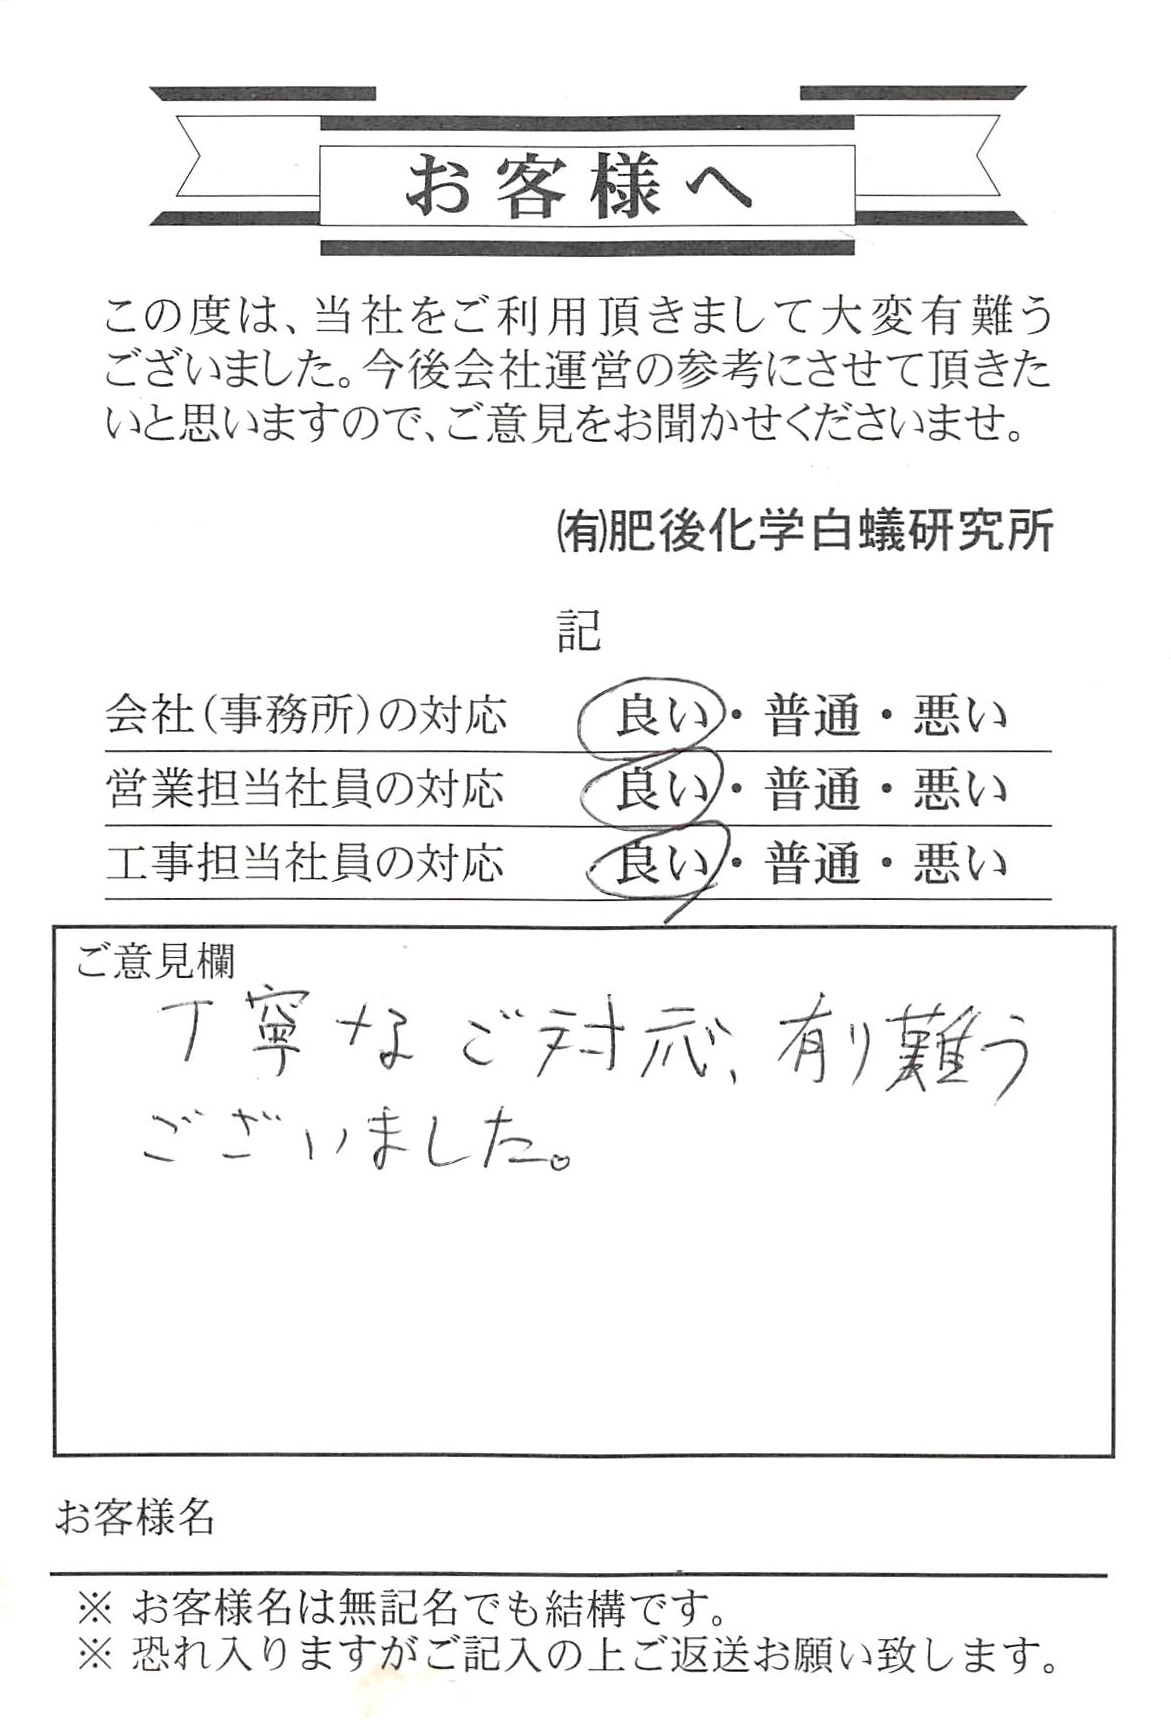 お客様へ
この度は、当社をご利用頂きまして大変有難う
ございました。今後会社運営の参考にさせて頂きた
いと思いますので、ご意見をお聞かせくださいませ。
㈲肥後化学白蟻研究所
記
会社(事務所)の対応 良い・普通・悪い
営業担当社員の対応 良い・普通・悪い
工事担当社員の対応 良い・普通・悪い
ご意見欄
丁寧なご対応、有り難う
ございました。
お客様名
※ お客様名は無記名でも結構です。
※ 恐れ入りますがご記入の上ご返送お願い致します。